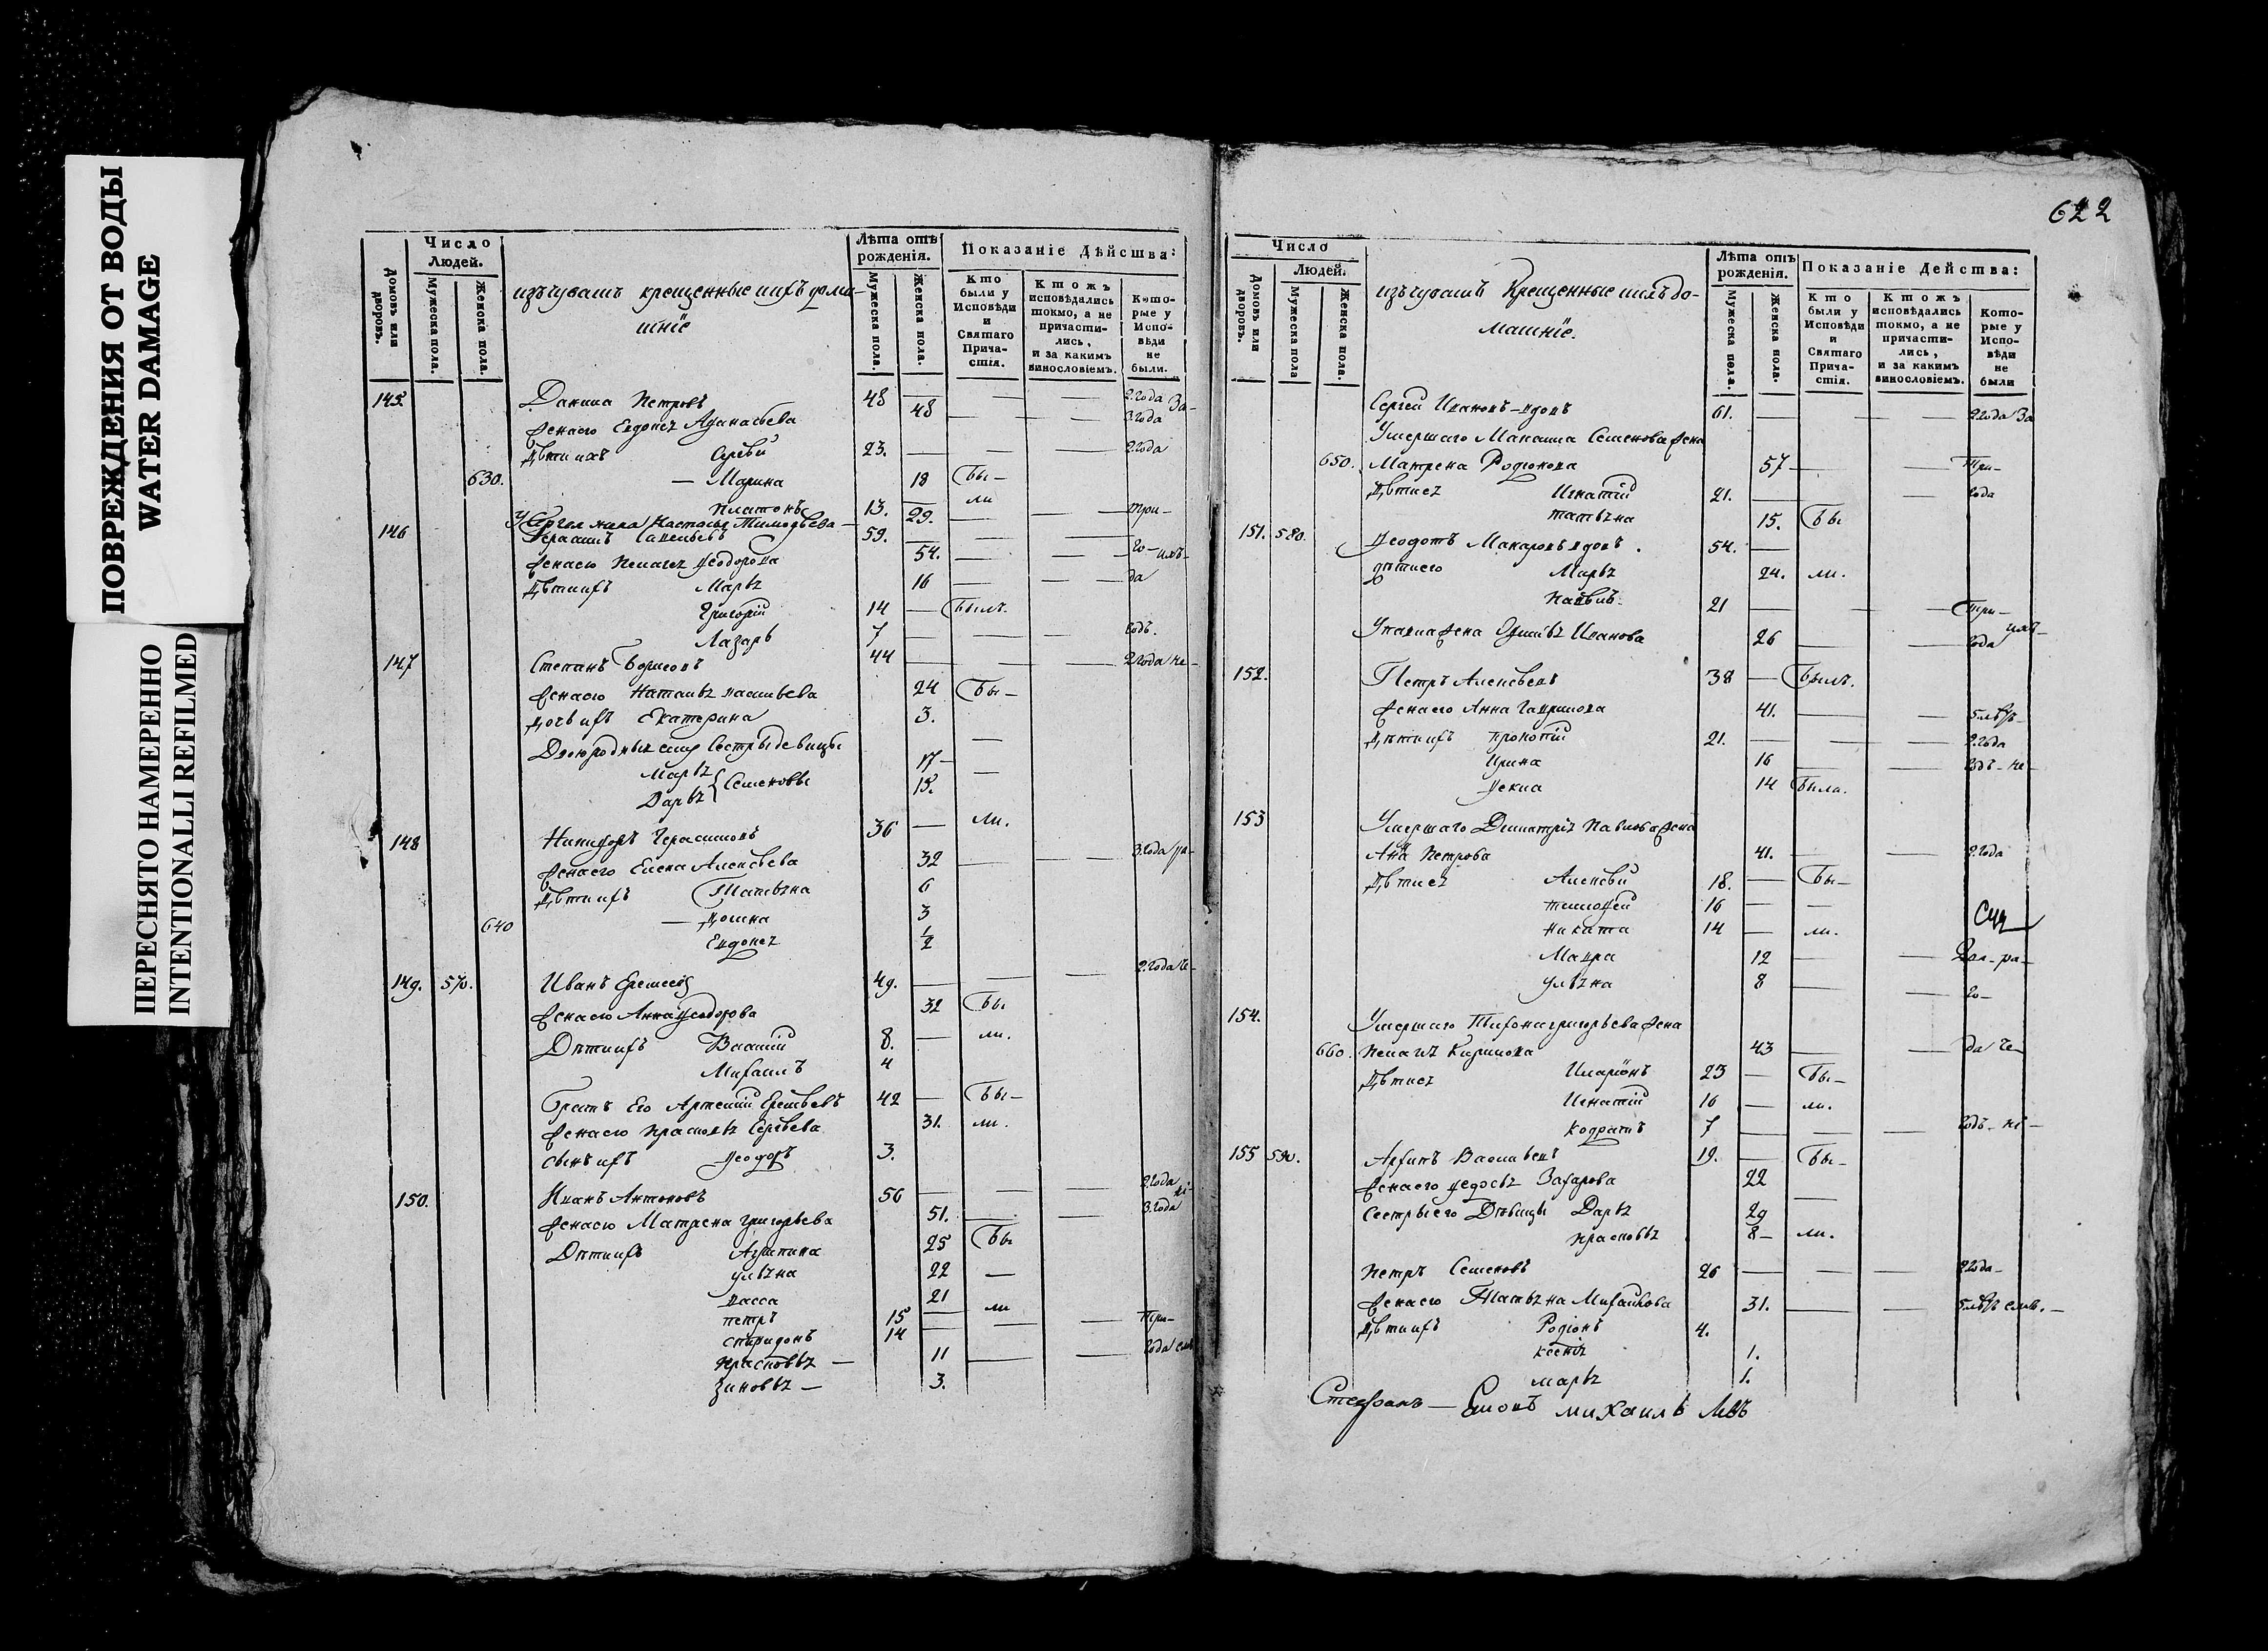 ПОВРЕЖДЕНИЯ ОТ ВОДЫ
WATER DAMAGE
ПЕРЕСНЯТО НАМЕРЕННО
INTENTIONALLI REFILMED
Число Людей.
Домовъ или дворовъ.
Мужеска пола.
Женска пола.
изъ чувашъ крещенные ихъ дома-
шніе
Лѣта отъ рожденія.
Мужеска пола.
Женска пола.
Показаніе Дѣйства:
Кто были у Исповѣди и Святаго Прича-стія.
Ктожъ исповѣдались токмо, а не причасти-лись, и за какимъ винословіемъ.
Кото-рые у Испо-вѣди не были.
145 Данила Петровъ 48 — — — 2 года За-
Жена его Евдокія Афанасьева 48 — — 3 года
Дѣти ихъ Сергѣй 23. — — — 2 года
630. — Марина 18 Бы-
Платонъ 13. — ли
Настасья Тимофѣева — 29. — — три-
146 Герасимъ 59. — — —
Жена его Пелагея Ѳеодорова 54. — — го-
Дѣти ихъ Марья 16 — — да
Григорій 14 — Былъ.
Лазарь 7 — — — годъ.
147 Степанъ Борисовъ 44 — — — 2 года не-
Жена его Наталья Васильева 24 Бы-
Дочь ихъ Екатерина 3.
Двоюродныя ему сестры девицы —
Марья 17 —
Дарья Семеновы 15.
148 Никифоръ Герасимовъ 36 — ли.
Жена его Елена Алексѣева 32 — — 3 года ра-
Дѣти ихъ Татьяна 6
640 — Домна 3
Евдокея 1/2
149. 570. Иванъ Еремѣевъ 49. — — — 2 года не-
Жена его Анна Ѳеодорова 32 Бы
Дѣти ихъ Василій 8. — ли.
Михаилъ 4
Братъ Его Артемій Еремѣевъ 42 — Бы-
Жена его Прасковья Сергѣева 31. ли.
Сынъ ихъ Ѳеодоръ 3.
150. Иванъ Антоновъ 56 — — — 2 года
Жена его Матрена Григорьева 51. — — 3 года
Дѣти ихъ Агрипина 25 Бы
Ульяна 22 —
Васса 21
Петръ 15 — ли
Спиридонъ 14 — — — Три-
Прасковья — 11 — — года
Зиновья — 3.
622
Число Людей.
Домовъ или дворовъ.
Мужеска пола
Женска пола.
изъ чувашъ Крещенные ихъ до-
машніе.
Лѣта отъ рожденія.
Мужеска пола.
Женска пола.
Показаніе Действа:
Кто были у Исповѣди и Святаго Прича-стія.
Ктожъ исповѣдались токмо, а не причасти-лись, и за какимъ винословіемъ.
Кото-рые у Испо-вѣди не были
Сергей Ивановъ — вдовъ 61. — — — 2 года За
Умершаго Семенова жена
650. Матрена Родионова 57 — — Три-
Дѣти ея Игнатій 21. — — года
Татьяна 15. Бы
151. 580. Ѳеодотъ Макаровъ вдовъ. 54. —
дѣти его Марья 24. ли.
Павелъ 21 — — — Три-
У Павла жена Иванова 26 — — года
152. Петръ Алексѣевъ 38 — Былъ.
Жена его Анна Гаврилова 41. — — 5 лѣтъ-
Дѣти ихъ Прокопій 21. — — — 2 года
Ирина 16 — — годъ - не-
Ѳекла 14 Была.
153 Умершаго Димитрія Павлова жена
Анна Петрова 41. — — 2 года
Дѣти ея Алексѣй 18. — Бы-
Тимофей 16 — —
Никита 14 — ли.
Мавра 12 — — Два - ра-
Ульяна 8 — — го-
154. Умершаго Тихона Григорьева жена
660. Пелагея Кирилова 43 — — да не-
Дѣти ея Иларіонъ 23 — Бы-
Игнатій 16 — ли.
Кодратъ 7 — — — годъ - не-
155 590. Архипъ Васильевъ 19. — Бы-
Жена его Ѳедосья Захарова 22 —
Сестры его Дѣвицы Дарья 29
Прасковья 8 — ли.
Петръ Семеновъ 26 — — — 2 года -
Жена его Татьяна Михайлова 31. — — 5 лѣтъ
Дѣти ихъ Родіонъ 4.
Ксенія 1.
Марья 1.
Стефанъ — Михаилъ